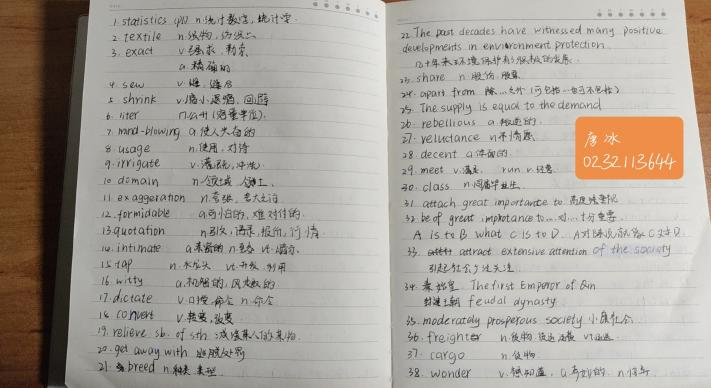 1. statistics (pl) n.统计数字,统计学.
2. textile n.织物,纺织品
3. exact v.强求,勒索
a.精确的
4. sew v.缝,缝合
5 shrink v.缩小,退缩,回避
6. liter n.公升(容量单位).
7. mind-blowing a.使人失色的
8. usage n.使用,对待
9. irrigate v.灌溉,冲洗
10 domain n.领域
11 exaggeration n.夸张,夸大之词
12. formidable a.可怕的,难对付的
13 quotation n.引文,语录,报价,行情
14. intimate a.亲密的 n.至交 vt.暗示.
15 tap n.水龙头 vt.开发,利用
16. witty a.机智的,风趣的
17. dictate v.口授,命令 n.命令
18 convert v.转变,改变
19. relieve sb. of sth 减缓某人的某物.
20. get away with 逃脱处罚
21. breed n.种类 类型.
22. The past decades have witnessed many positive
developments in environment protection.
几十年来环境保护有了积极的发展.
23. share n.股份,股票
24. apart from 除...之外(可包括...也可不包括)
25. The supply is equal to the demand
26. rebellious a.叛逆的
27. reluctance n.不情愿
28. decent a.体面的
29. meet v.满足 run v.经营
30. class n.同届毕业生
31. attach great importance to 高度重视
32. be of great importance to...对...十分重要
A is to B what C is to D. A对B来说就像C对D.
33. attract extensive attention of the society
引起社会广泛关注
34. 秦始皇 The first Emperor of Qin
封建王朝 feudal dynasty
35. moderately prosperous society 小康社会
36. freight n.货物
37. cargo n.货物
38. wonder v.想知道 a.奇妙的 n.奇与
唐冰
0232113644